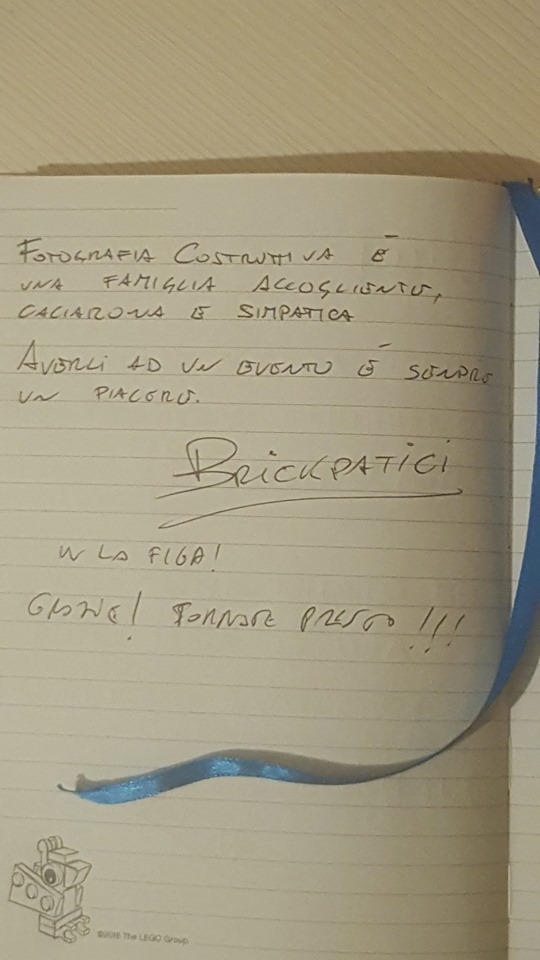 FOTOGRAFIA COSTRUTTIVA È
UNA FAMIGLIA ACCOGLIENTE,
CACIARONA E SIMPATICA
AVERLI AD UN EVENTO È SEMPRE
UN PIACERE.
BRICKPATICI
W LA FIGA!
GRAZIE! TORNATE PRESTO!!!
©2016 The LEGO Group